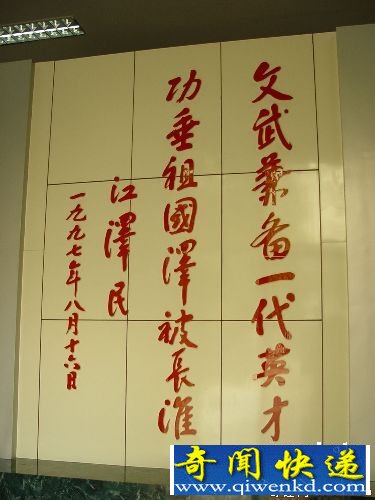 文武兼备一代英才
功垂祖國澤被長淮
江澤民
一九九七年八月十六日
奇闻快递
www.qiwenkd.com